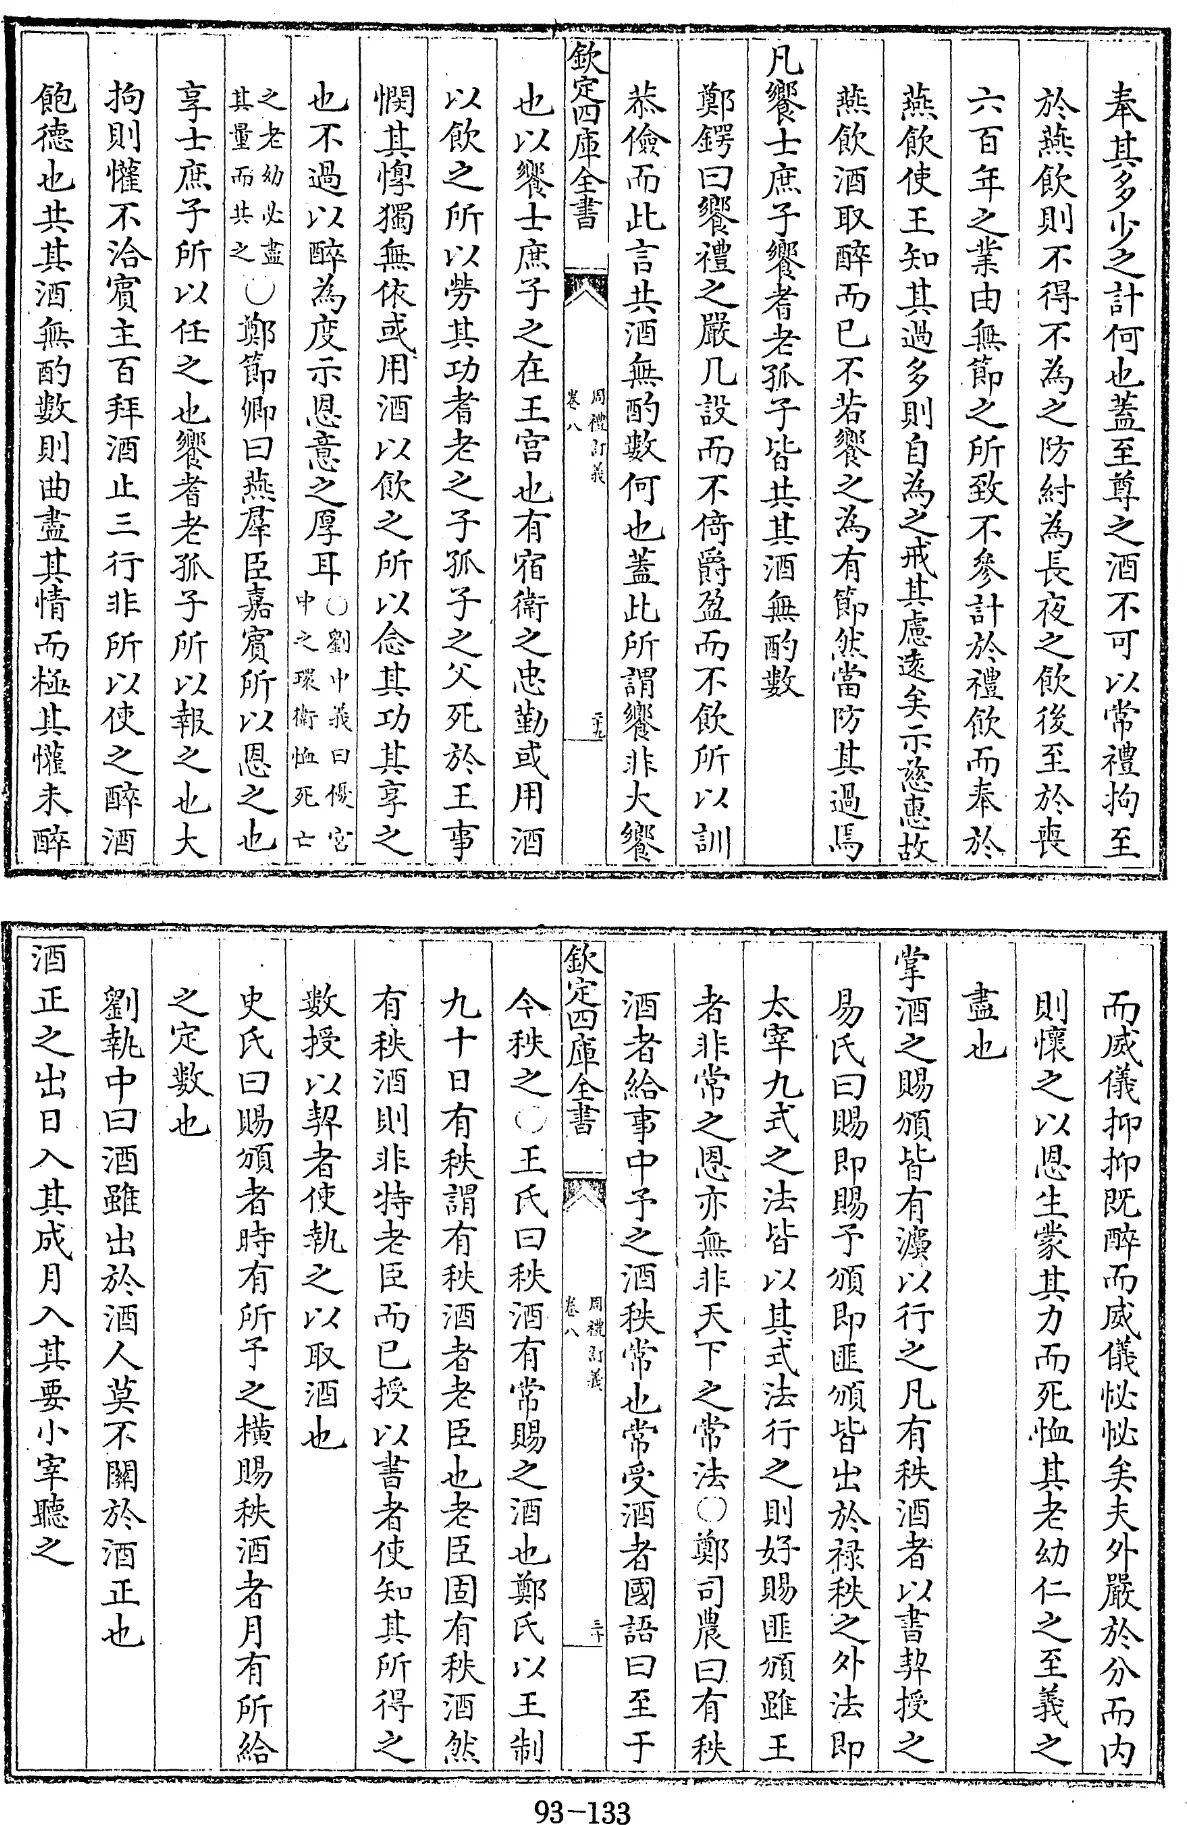 奉其多少之計何也蓋至尊之酒不可以常禮拘至
於燕飲則不得不為之防紂為長夜之飲後至於喪
六百年之業由無節之所致不參計於禮飲而奉於
燕飲使王知其過多則自為之戒其慮遠矣示慈惠故
燕飲酒取醉而已不若饗之為有節然當防其過焉
凡饗士庶子饗耆老孤子皆共其酒無酌數
鄭鍔曰饗禮之嚴几設而不倚爵盈而不飲所以訓
恭儉而此言共酒無酌數何也蓋此所謂饗非大饗
欽定四庫全書
周禮訂義
卷八
二十九
也以饗士庶子之在王宮也有宿衛之忠勤或用酒
以飲之所以勞其功耆老之子孤子之父死於王事
憫其惸獨無依或用酒以飲之所以念其功其享之
也不過以醉為度示恩意之厚耳○劉中義曰優宮
中之環衛恤死亡
之老幼必盡
其量而共之○鄭節卿曰燕羣臣嘉賓所以恩之也
享士庶子所以任之也饗耆老孤子所以報之也大
拘則懽不洽賓主百拜酒止三行非所以使之醉酒
飽德也共其酒無酌數則曲盡其情而極其懽未醉
而威儀抑抑既醉而威儀怭怭矣夫外嚴於分而內
則懷之以恩生蒙其力而死恤其老幼仁之至義之
盡也
掌酒之賜頒皆有灋以行之凡有秩酒者以書契授之
易氏曰賜即賜予頒即匪頒皆出於祿秩之外法即
太宰九式之法皆以其式法行之則好賜匪頒雖王
者非常之恩亦無非天下之常法○鄭司農曰有秩
酒者給事中予之酒秩常也常受酒者國語曰至于
欽定四庫全書
周禮訂義
卷八
三十
今秩之○王氏曰秩酒有常賜之酒也鄭氏以王制
九十日有秩謂有秩酒者老臣也老臣固有秩酒然
有秩酒則非特老臣而已授以書者使知其所得之
數授以契者使執之以取酒也
史氏曰賜頒者時有所予之橫賜秩酒者月有所給
之定數也
劉執中曰酒雖出於酒人莫不關於酒正也
酒正之出日入其成月入其要小宰聽之
93-133